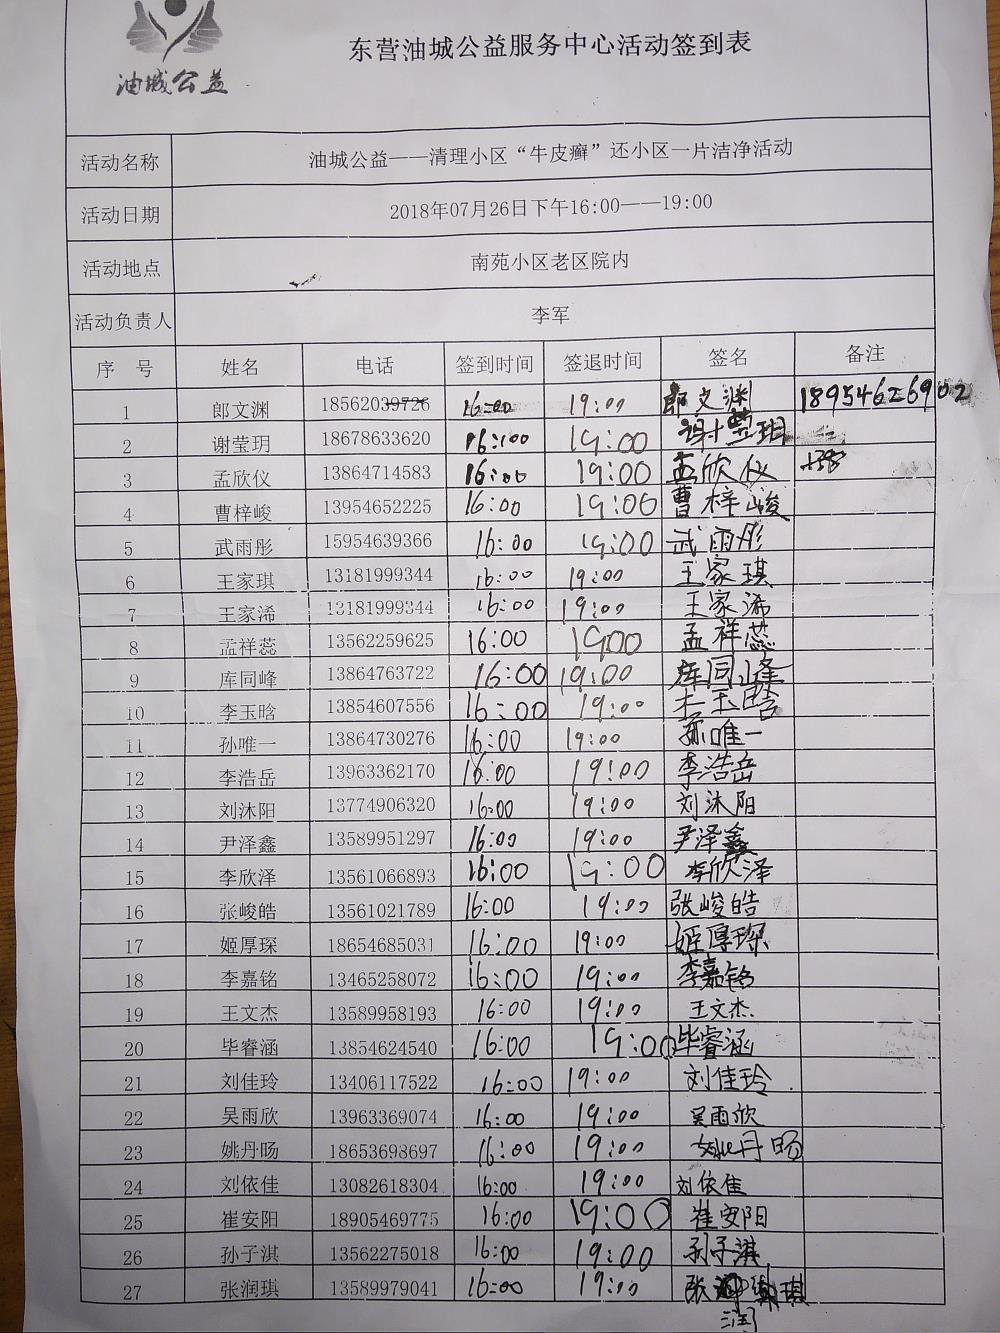 油城公益
东营油城公益服务中心活动签到表
活动名称 油城公益——清理小区“牛皮癣”还小区一片洁净活动
活动日期 2018年07月26日下午16:00——19:00
活动地点 南苑小区老区院内
活动负责人 李军
序 号 姓名 电话 签到时间 签退时间 签名 备注
1 郎文渊 18562039726 16:00 19:00 郎文渊 18954626902
2 谢莹玥 18678633620 16:00 19:00 谢莹玥
3 孟欣仪 13864714583 16:00 19:00 孟欣仪
4 曹梓峻 13954652225 16:00 19:00 曹梓峻
5 武雨彤 15954639366 16:00 19:00 武雨彤
6 王家琪 13181999344 16:00 19:00 王家琪
7 王家浠 13181999344 16:00 19:00 王家浠
8 孟祥蕊 13562259625 16:00 1900 孟祥蕊
9 库同峰 13864763722 16:00 19:00 库同峰
10 李玉晗 13854607556 16:00 19:00 李玉晗
11 孙唯一 13864730276 16:00 19:00 孙唯一
12 李浩岳 13963362170 16:00 19:00 李浩岳
13 刘沐阳 13774906320 16:00 19:00 刘沐阳
14 尹泽鑫 13589951297 16:00 19:00 尹泽鑫
15 李欣泽 13561066893 16:00 19:00 李欣泽
16 张峻皓 13561021789 16:00 19:00 张峻皓
17 姬厚琛 18654685031 16:00 19:00 姬厚琛
18 李嘉铭 13465258072 16:00 19:00 李嘉铭
19 王文杰 13589958193 16:00 19:00 王文杰.
20 毕睿涵 13854624540 16:00 19:00 毕睿涵
21 刘佳玲 13406117522 16:00 19:00 刘佳玲
22 吴雨欣 13963369074 16:00 19:00 吴雨欣
23 姚丹旸 18653698697 16:00 19:00 姚丹旸
24 刘依佳 13082618304 16:00 19:00 刘依佳
25 崔安阳 18905469775 16:00 19:00 崔安阳
26 孙子淇 13562275018 16:00 19:00 孙子淇
27 张润琪 13589979041 16:00 19:00 张 琪
润